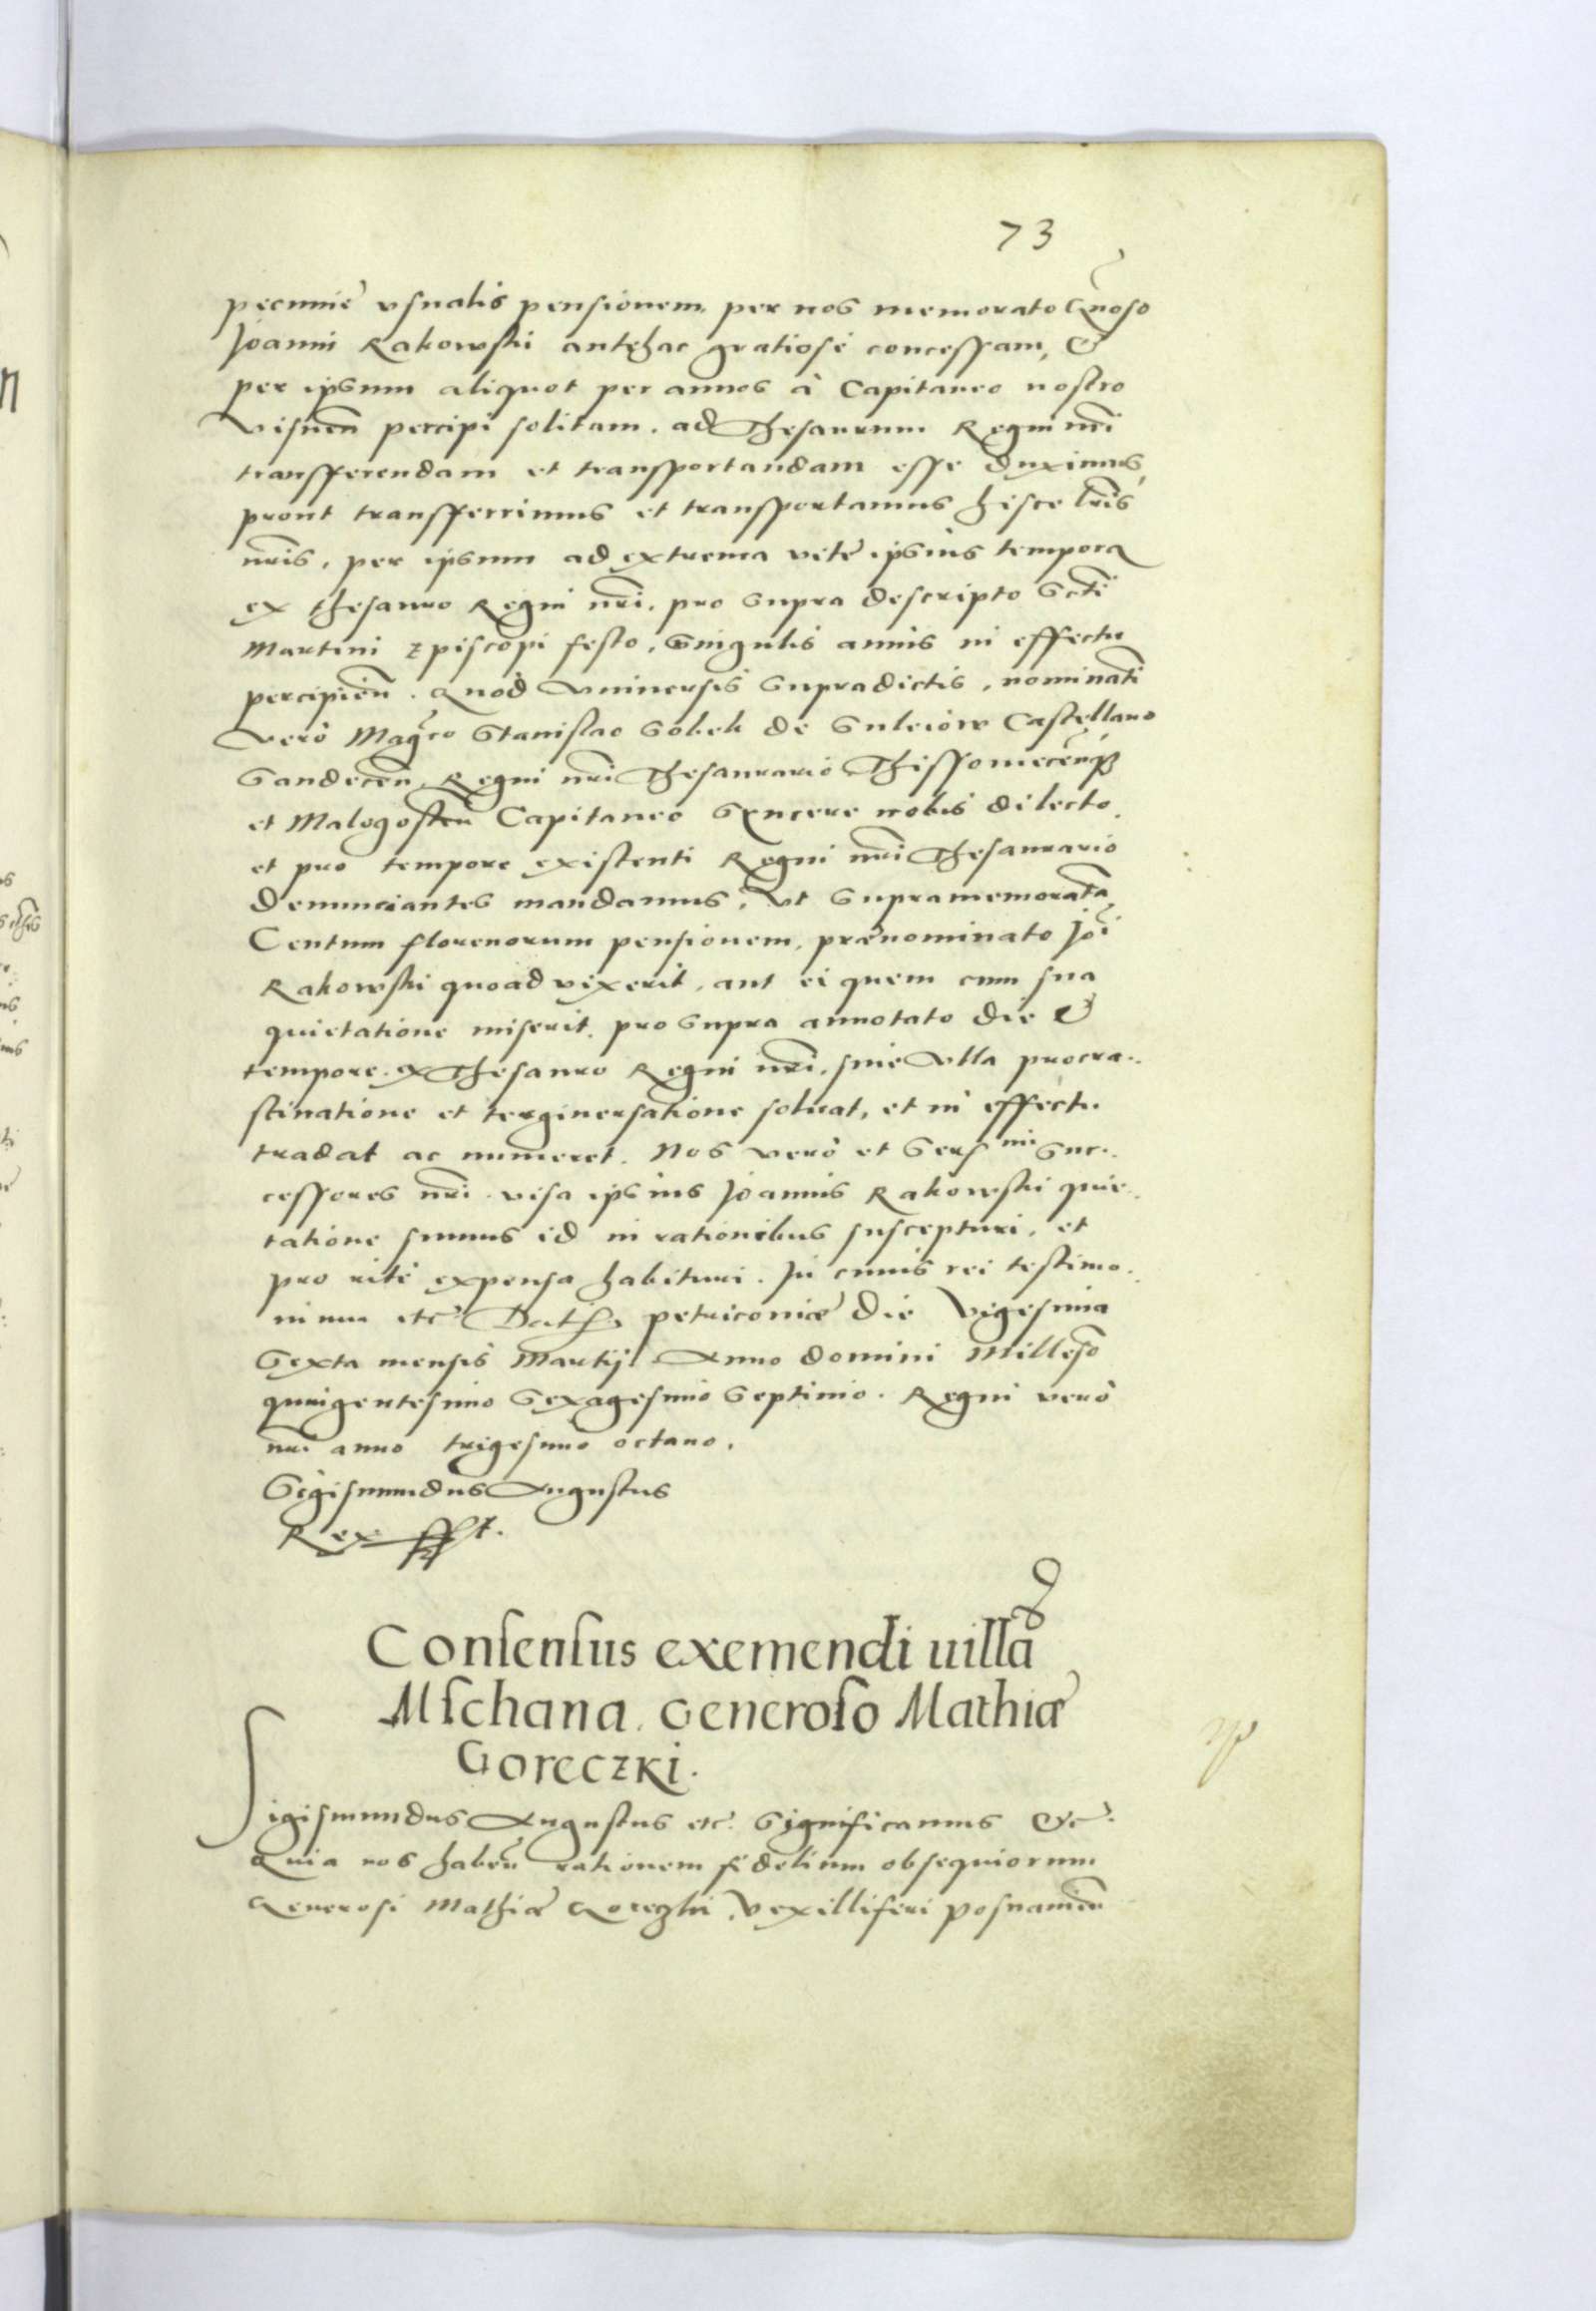 73
pecuniæ usualis pensionem, per nos memorato Gnoso
Joanni Rakowski antehac gratiose concessam, &
per ipsum aliquot per annos à Capitaneo nostro
Visnen̄ percipi solitam, ad Thesaurum Regni nr̄i
transfferendam et transsportandam esse duximus,
prout transfferrimus et transsportamus hisce lr̄is
nr̄is, per ipsum ad extrema vitæ ipsius tempora
ex thesauro Regni nr̄i, pro supra descripto Scti
Martini Episcopi festo, Singulis annis in effectu
percipien̄. Quod Universis supradictis, nominatī
Verò Magco Stanislao Sobek de Suleiow Castellano
Sandecen̄, Regni nr̄i Thesaurario, Thissoviecen̄q;
et Malogosten̄ Capitaneo Syncere nobis dilecto,
et pro tempore existenti Regni nr̄i Thesaurario
denunciantes mandamus, Ut supramemoratā
Centum florenorum pensionem, prænominato Joī
Rakowski quoad vixerit, aut ei quem cum sua
quietatione miserit, pro supra annotato die &
tempore, ex Thesauro Regni nr̄i, sine Ulla procra-
stinatione et tergiversatione solvat, et in effectu
tradat ac numeret. Nos verò et Sers mi Suc-
cessores nr̄i visa ipsius Joannis Rakowski quie-
tatione sumus id in rationibus suscepturi, et
pro ritè expensa habituri. In cuius rei testimo-
nium etc. Dat petricouiæ die Vigesima
Sexta mensis Martij Anno domini Milleso
quingentesimo Sexagesimo Septimo. Regni verò
nr̄i anno trigesimo octavo.
Sigismundus Augustus
Rex sst.
Consensus exemendi uillā
Mschana. Generoso Mathiæ
Goreczki.
Sigismundus Augustus etc. Significamus &c.
Quia nos haben̄ rationem fidelium obsequiorum
Generosi Mathiæ Goreczki, Vexilliferi posnanien̄